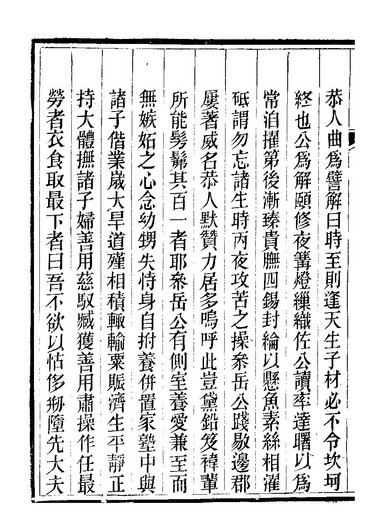 恭人曲爲譬解曰時至則逢天生子材必不令坎坷
終也公爲解頤修夜篝燈纑織佐公讀率達曙以爲
常洎擢第後漸臻貴膴四錫封綸以懸魚素絲相濯
砥謂勿忘諸生時丙夜攻苦之操叅岳公踐敭邊郡
屢著威名恭人默贊力居多嗚呼此豈黛鉛笈褘輩
所能髣髴其百一者耶叅岳公有側室養愛兼至而
無嫉妬之心念幼甥失恃身自拊養併置家塾中與
諸子偕業歲大旱道殣相積輙輸粟賑濟生平靜正
持大體撫諸子婦善用慈馭臧獲善用肅操作任最
勞者衣食取最下者曰吾不欲以怙侈刱隳先大夫